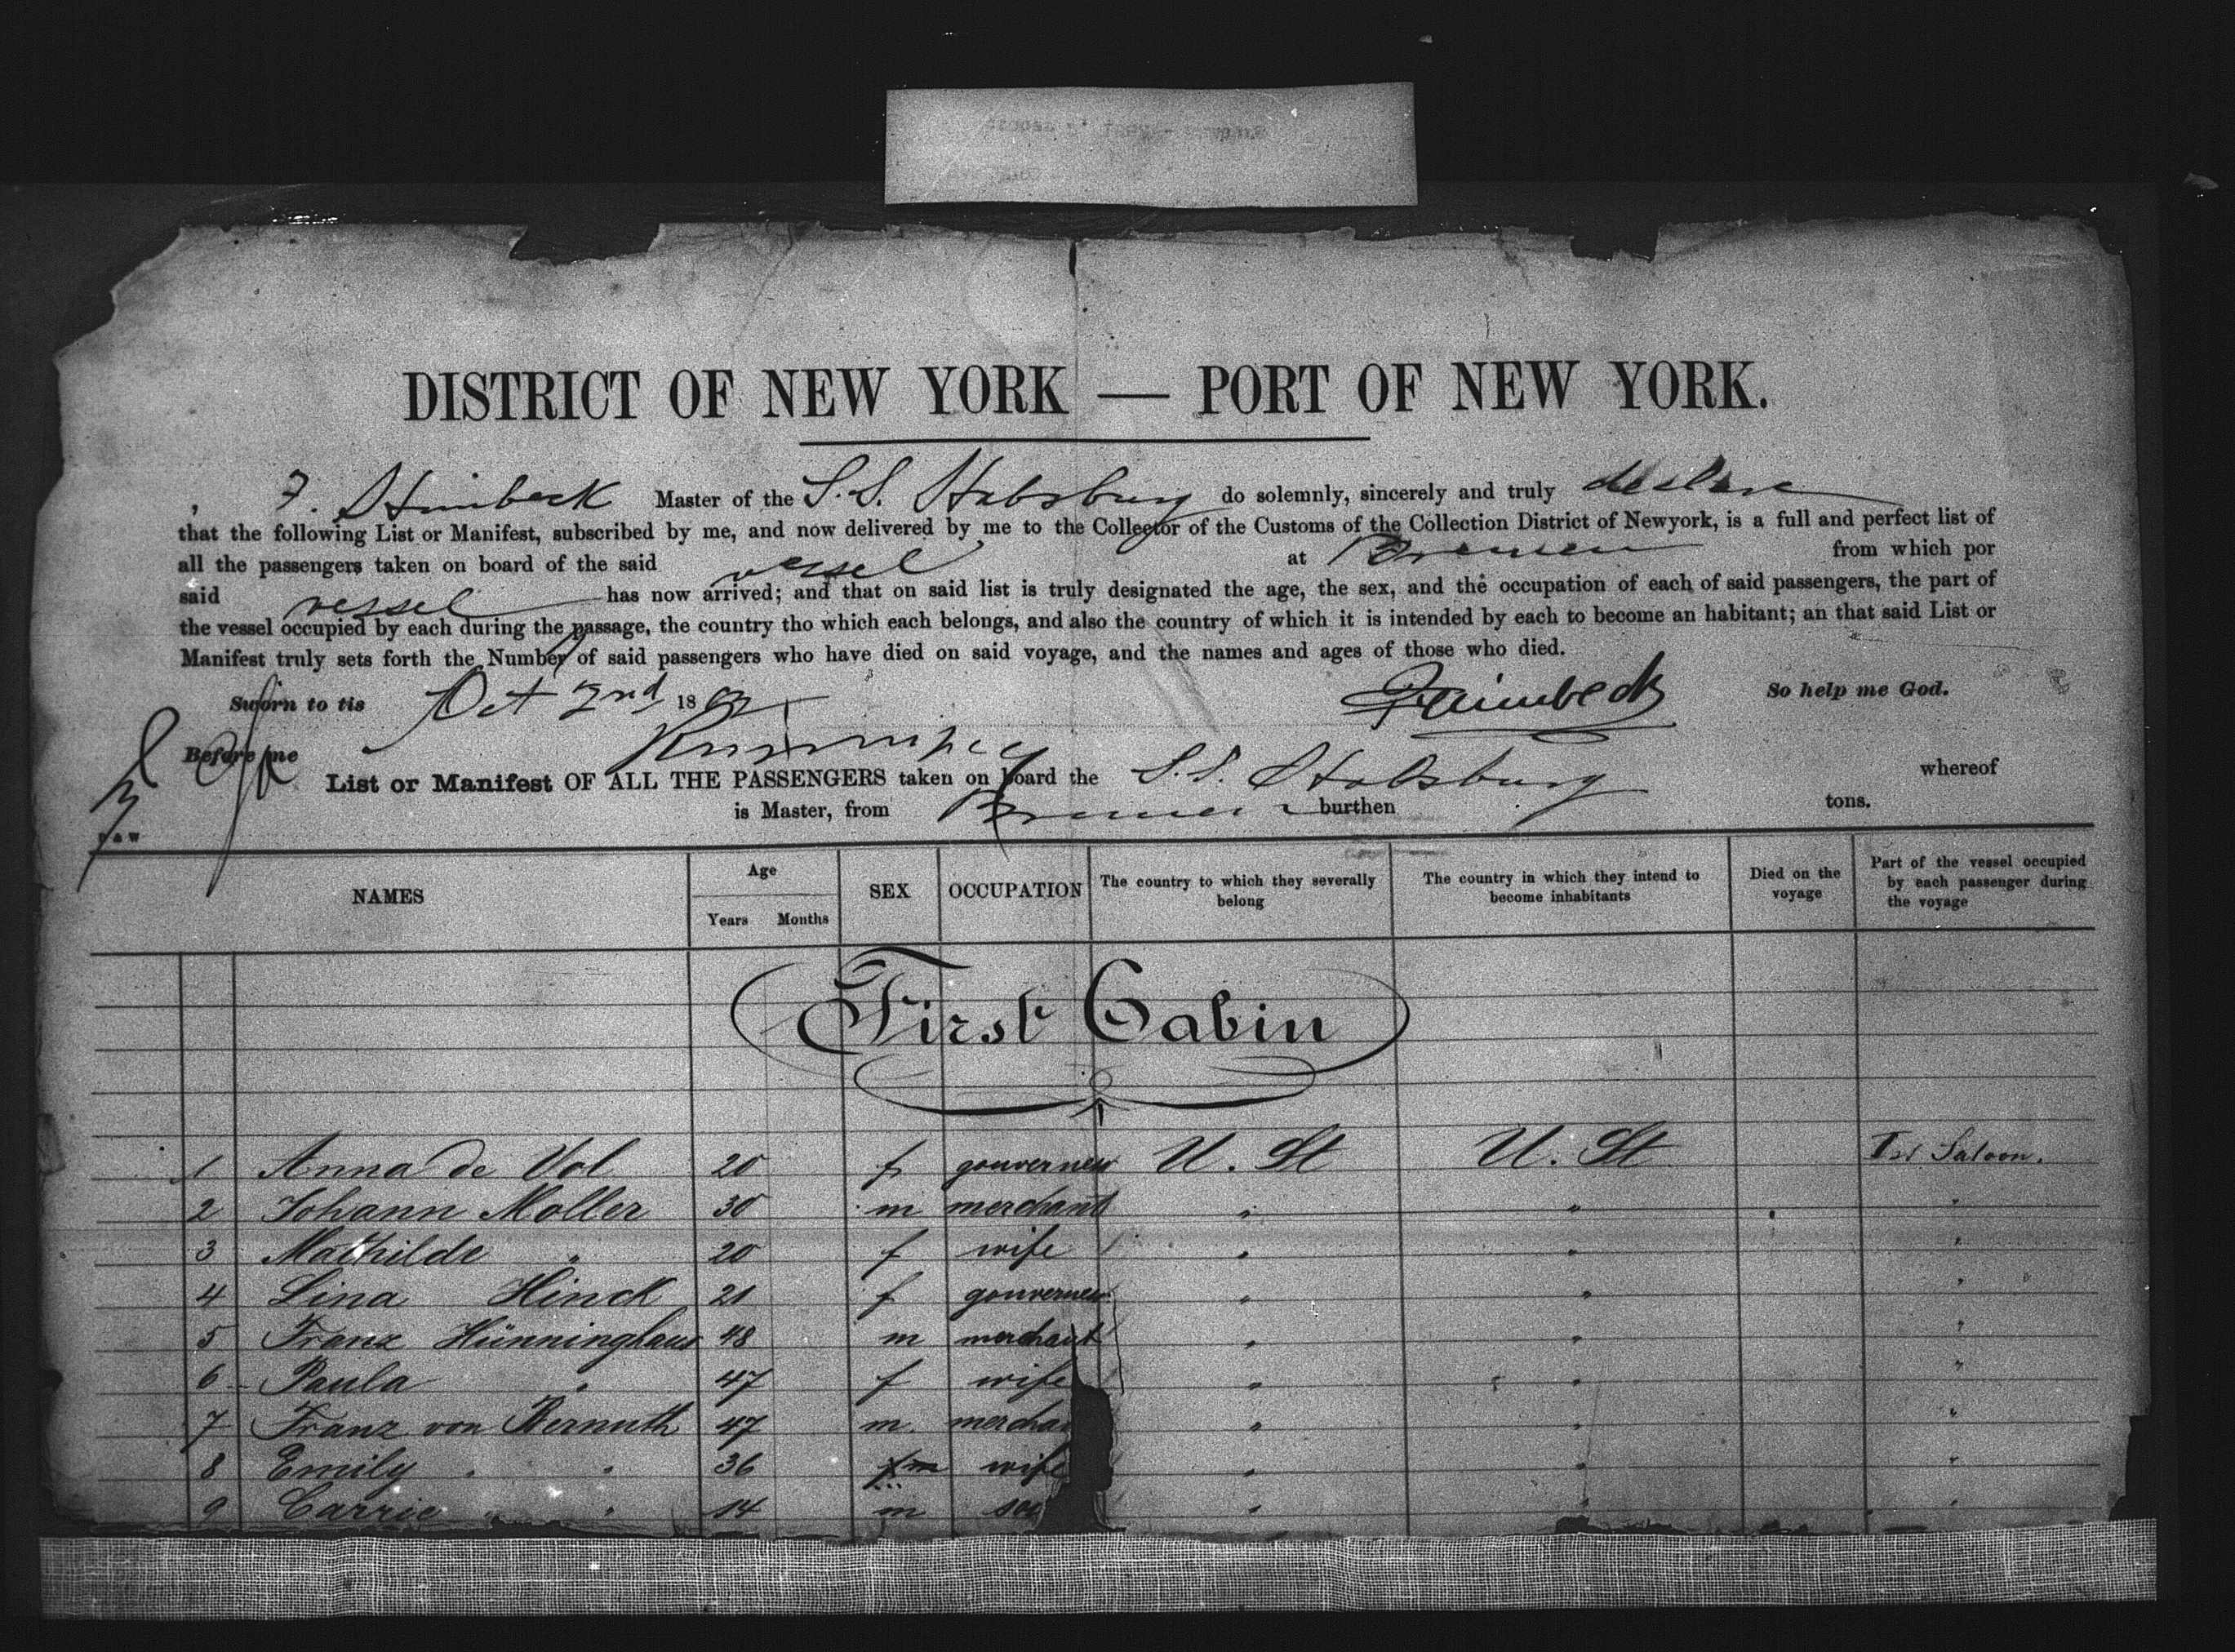 DISTRICT OF NEW YORK — PORT OF NEW YORK.
, F. Himbeck Master of the S.S. Habsburg do solemnly, sincerely and truly declare
that the following List or Manifest, subscribed by me, and now delivered by me to the Collector of the Customs of the Collection District of Newyork, is a full and perfect list of
all the passengers taken on board of the said vessel at Bremen from which por
said vessel has now arrived; and that on said list is truly designated the age, the sex, and the occupation of each of said passengers, the part of
the vessel occupied by each during the passage, the country tho which each belongs, and also the country of which it is intended by each to become an habitant; an that said List or
Manifest truly sets forth the Number of said passengers who have died on said voyage, and the names and ages of those who died.
Sworn to tis Oct 2nd 18 So help me God.
Before me
List or Manifest OF ALL THE PASSENGERS taken on board the S.S. Habsburg whereof
is Master, from Bremen burthen tons.
NAMES Age Years Months SEX OCCUPATION The country to which they severally belong The country in which they intend to become inhabitants Died on the voyage Part of the vessel occupied by each passenger during the voyage
First Cabin
1 Anna de Vol 20 f gouverness U. St U. St Ist Saloon.
2 Johann Moller 30 m merchant " " "
3 Mathilde " 20 f wife " " "
4 Lina Hinck 21 f gouverness " " "
5 Franz Hünninghaus 48 m merchant " " "
6 Paula " 47 f wife " " "
7 Franz von Bernuth 47 m. mercha " " "
8 Emily " " 36 m wife " " "
9 Carrie " " 14 m " " "